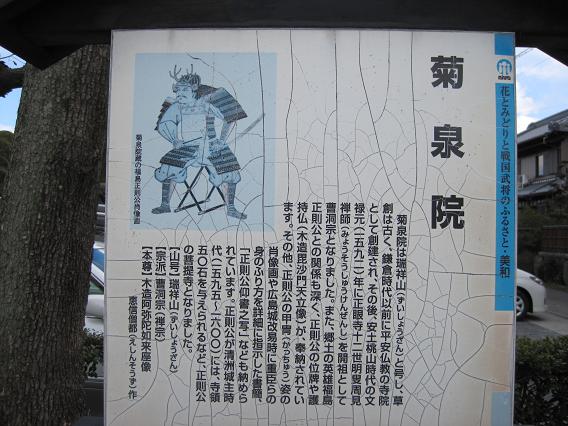 花とみどりと戦国武将のふるさと・美和
菊泉院
菊泉院は瑞祥山(ずいしょうざん)と号し、草
創は古く、鎌倉時代以前に平安仏教の寺院
として創建され、その後、安土桃山時代の文
禄元(一五九二)年に正眼寺十二世明叟周見
禅師(みょうそうしゅうけんぜんし)を開祖として
曹洞宗となりました。また、郷土の英雄福島
正則公との関係も深く、正則公の位牌や護
持仏(木造毘沙門天立像)が、奉納されてい
ます。その他、正則公の甲冑(かっちゅう)姿の
肖像画や広島城改易時に重臣らの
身のふり方を詳細に指示した書簡、
「正則公仰書之写」なども納めら
れています。正則公が清洲城主時
代(一五九五〜一六〇〇)には、寺領
五〇石を与えられるなど、正則公
の菩提寺となりました。
【山号】瑞祥山(ずいしょうざん)
【宗派】曹洞宗(禅宗)
【本尊】木造阿弥陀如来座像
恵信僧都(えしんそうず)作
菊泉院蔵の福島正則公肖像画